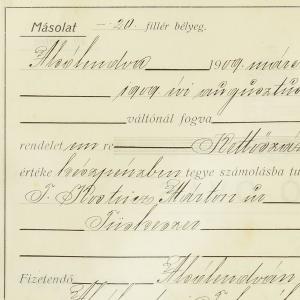 Másolat — 20. fillér bélyeg.
Alsólendva 1909 márc
1909 évi augusztus
váltónál fogva
rendelet en re Kettőszáz
értéke készpénzben tegye számolásba tu
T. Kostric Márton úr
Fizetendő Alsólendván